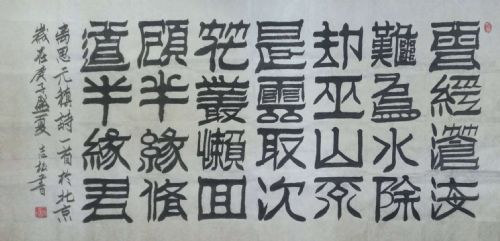 曾經滄海
難為水除
却巫山不
是雲取次
花叢懶回
顧半緣修
道半緣君
離思元稹詩一首於北京
歲在庚子盛夏 書